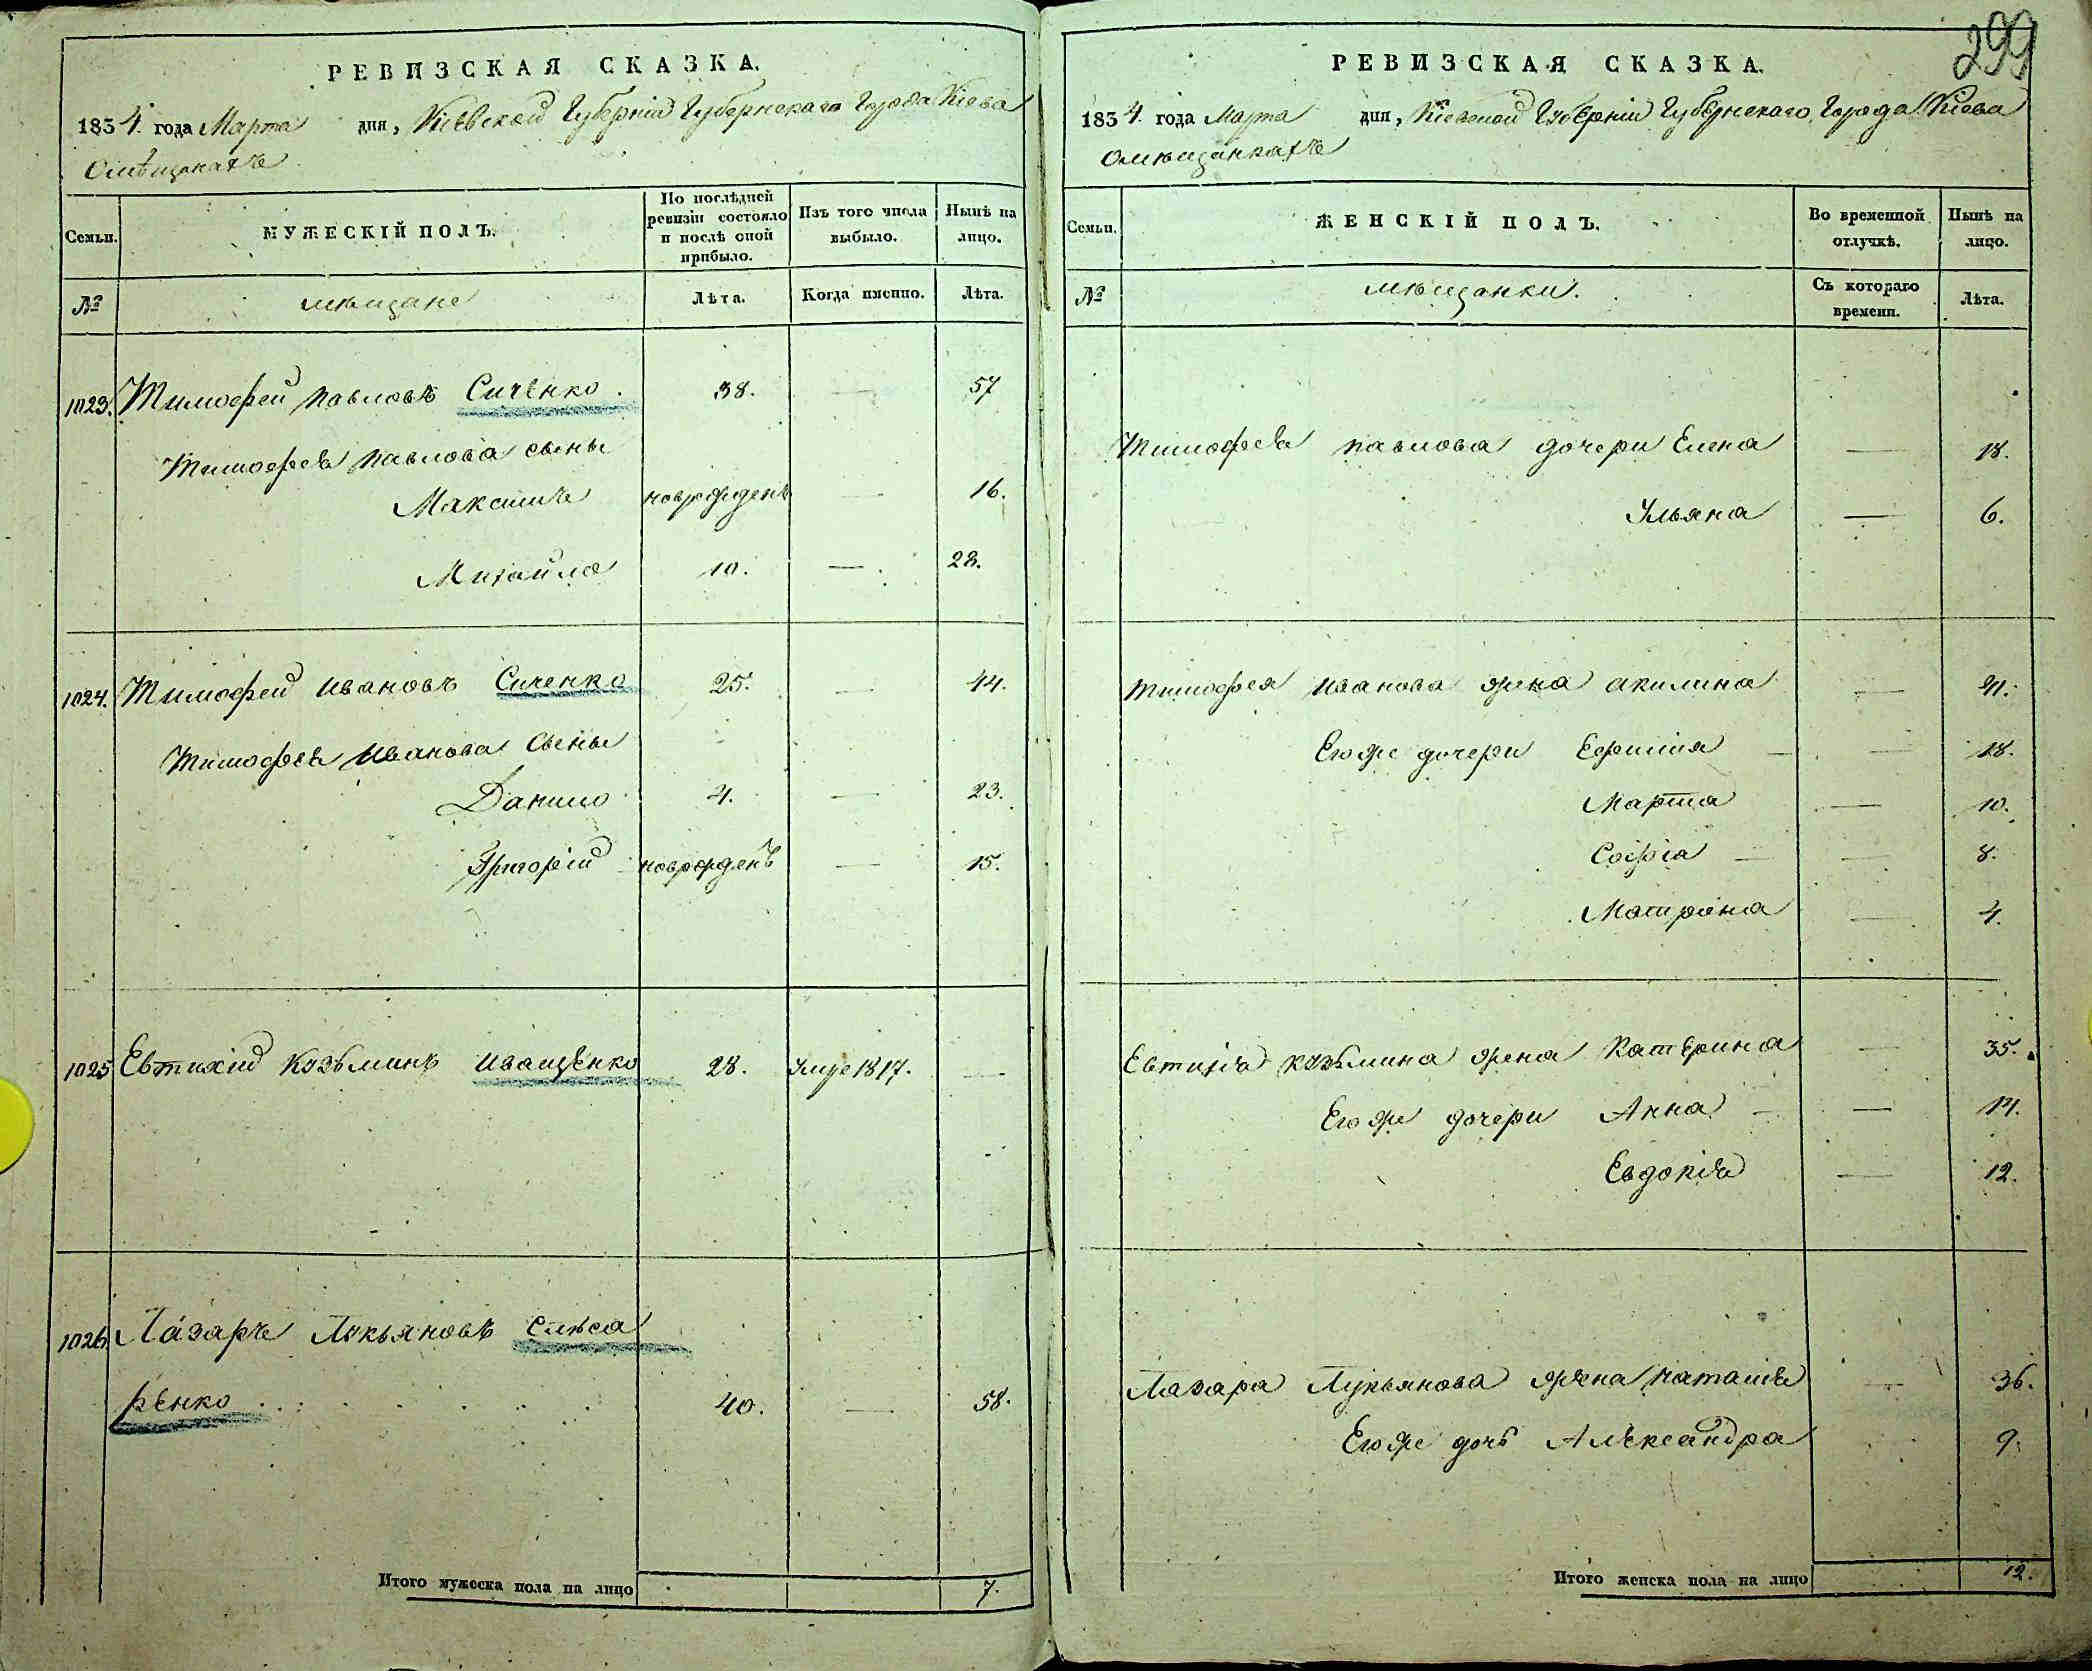 299
РЕВИЗСКАЯ СКАЗКА.
1834. года Марта дня, Кіевской Губерніи Губернскаго Города Кіева
О мѣщанахъ
Семьи.
МУЖЕСКІЙ ПОЛЪ.
По послѣдней ревизіи состояло и послѣ оной прибыло.
Изъ того числа выбыло.
Нынѣ на лицо.
№
мѣщане
Лѣта.
Когда имянно.
Лѣта.
1023. Тимофей Павловъ Сиченко. 38. — 57
Тимофея Павлова сыны
Максимъ новорожденъ — 16.
Михайло 10. — 28.
1024. Тимофей Ивановъ Сиченко 25. — 44.
Тимофея Иванова Сыны
Данило 4. — 23.
Григорій новорожденъ — 15.
1025 Евтихій Кузьминъ Иващенко 28. Умре 1817. —
1026. Лазарь Лукьяновъ Слюса
ренко 40. — 58.
Итого мужеска пола на лицо 7.
РЕВИЗСКАЯ СКАЗКА.
1834. года Марта дня, Кіевской Губерніи Губернскаго Города Кіева
О мѣщанкахъ
Семьи.
ЖЕНСКІЙ ПОЛЪ.
Во временной отлучкѣ.
Нынѣ на лицо.
№
мѣщанки.
Съ котораго времени.
Лѣта.
Тимофея Павлова дочери Елена — 18.
Ульяна — 6.
Тимофея Иванова жена Акилина — 41.
Его же дочери Ефимія — 18.
Марта — 10.
Софія — 8.
Матрона — 4.
Евтихія Кузьмина жена Катерина — 35.
Его же дочери Анна — 14.
Евдокія — 12.
Лазаря Лукьянова жена Наталія — 36.
Его же дочь Александра 9.
Итого женска пола на лицо 12.